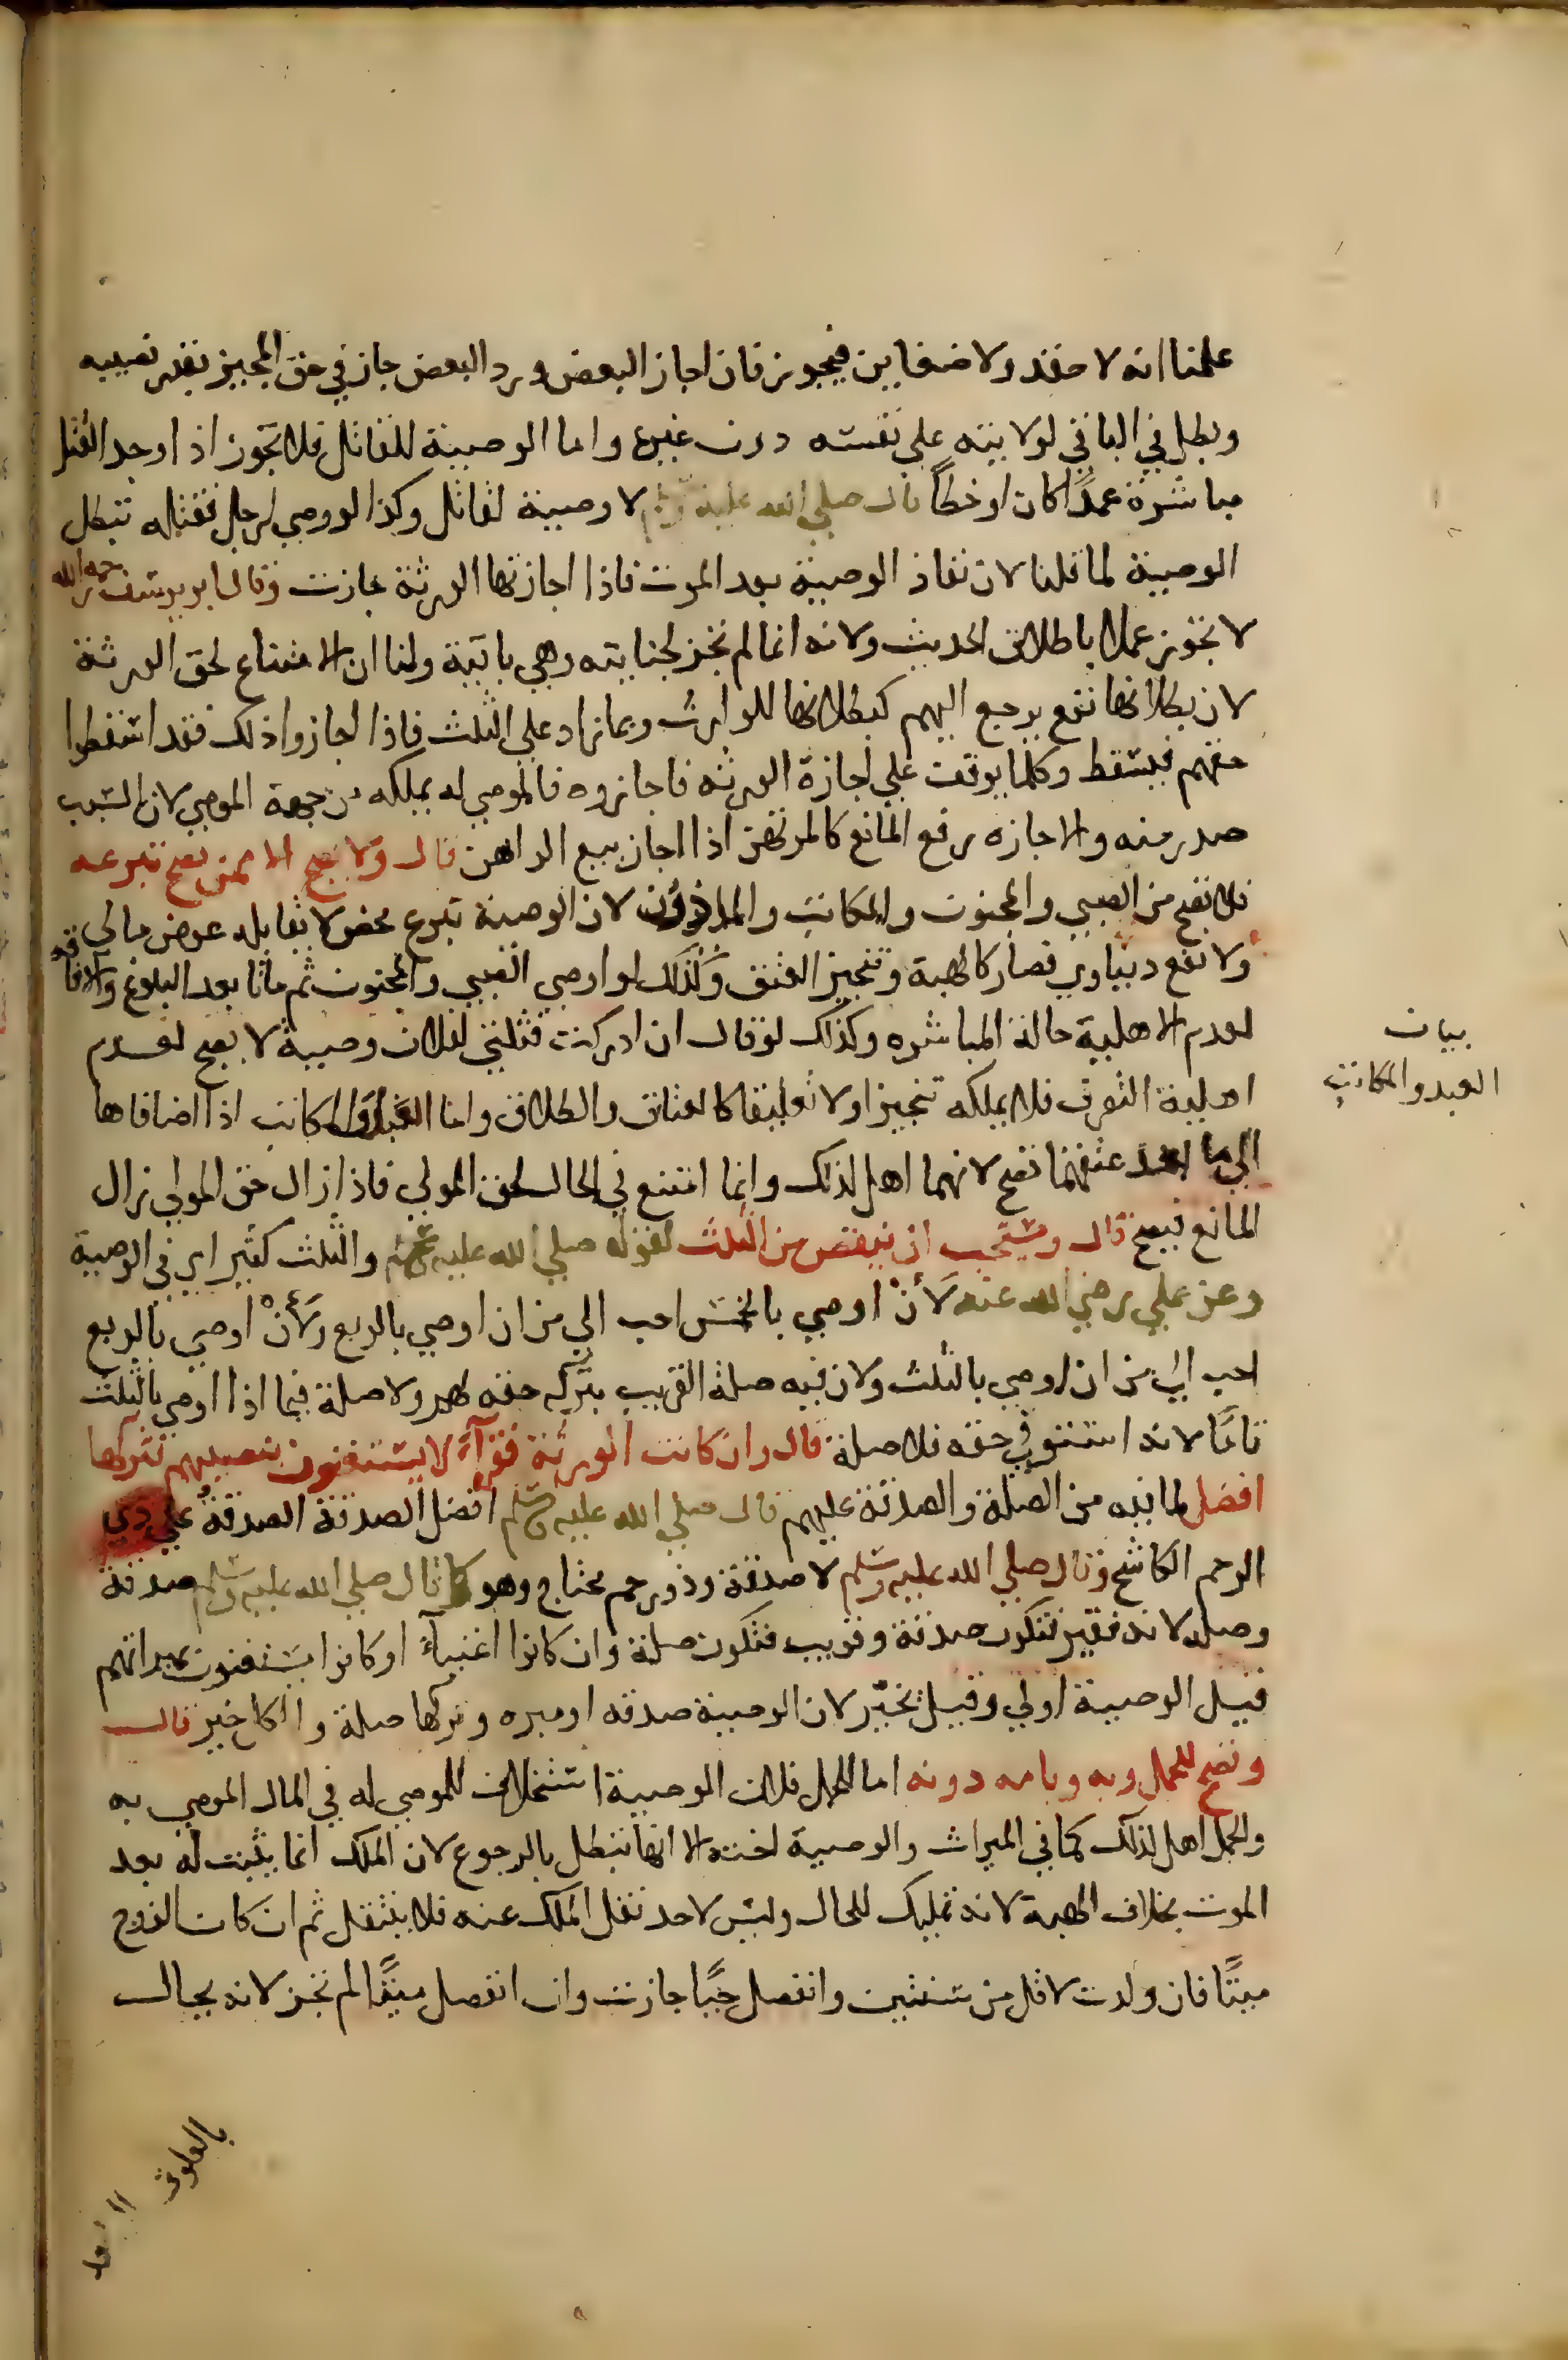 علمنا انه لا حقد ولا ضغاين فيجوز فان اجاز البعض ورد البعض جاز في حق المجيز بقدر نصيبه
وبطل في الباقي لولايته علي نفسه دون غيره واما الوصية للقاتل فلا تجوز اذا وجد القتل
مباشرة عمدًا كان او خطاً قال صلي الله عليه وسلم لا وصية لقاتل وكذا لو وصي لرجل فقتله تبطل
الوصية لما قلنا لان نفاذ الوصية بعد الموت فاذا اجازتها الورثة جازت وقال ابو يوسف رحمه الله
لا تجوز عملا باطلاق الحديث ولانه انما لم تجز لجنايته وهي باقية ولنا ان الامتناع لحق الورثة
لان بطلانها نفع يرجع اليهم كبطلانها للوارث وبما زاد علي الثلث فاذا اجازوا ذلك فقد اسقطوا
حقهم فيسقط وكلما يوقف علي اجازة الورثه فاجازوه فالموصي له يملكه من جهة الموصي لان السبب
صدر منه والاجازه رفع المانع كالمرتهن اذا اجاز بيع الراهن قال ولا تصح الا ممن يصح تبرعه
فلا تصح من الصبي والمجنون والمكاتب والماذون لان الوصية تبرع محض لا يقابله عوض مالي
ولا نفع دنياوي فصار كالهبة وتنجيز العتق وكذلك لو اوصي الصبي والمجنون ثم ماتا بعد البلوغ والافاقه
لعدم الاهلية حالة المباشره وكذلك لو قال ان ادركت فثلثي لفلان وصية لا يصح لعدم
اهلية التصرف فلا يملكه تنجيزا ولا تعليقا كالعتاق والطلاق واما العبد والمكاتب اذا اضافاها
الي ما بعد عتقهما تصح لانهما اهل لذلك وانما امتنع في الحال لحق المولي فاذا زال حق المولي زال
المانع فيصح قال ويستحب ان ينقص من الثلث لقوله صلي الله عليه وسلم والثلث كثير اي في الوصية
وعن علي رضي الله عنه لأن اوصي بالخمس احب الي من ان اوصي بالربع ولأن اوصي بالربع
احب الي من ان اوصي بالثلث ولان فيه صلة القريب بتركه حقه لهم ولا صلة فيما اذا اوصي بالثلث
تامًا لانه استوفي حقه فلا صلة قال وان كانت الورثة فقرآء لا يستغنون بنصيبهم فتركها
افضل لما فيه من الصلة والصدقة عليهم قال صلي الله عليه وسلم افضل الصدقة الصدقة علي ذي
الرحم الكاشح وقال صلي الله عليه وسلم لا صدقة وذو رحم محتاج وهو كما قال صلي الله عليه وسلم صدقة
وصلة لانه فقير فتكون صدقة وقريب فتكون صلة وان كانوا اغنيآء او كانوا يستغنون بميراثهم
قيل الوصية اولي وقيل تخيّر لان الوصية صدقه او مبره وتركها صلة والكل خير قال
وتصح للحمل وبه وبامه دونه اما للحمل فلان الوصية استخلاف للموصي له في المال الموصي به
والحمل اهل لذلك كما في الميراث والوصية اخته الا انها تبطل بالرجوع لان الملك انما يثبت له بعد
الموت بخلاف الهبة لانه تمليك للحال وليس لاحد نقل الملك عنه فلا ينتقل ثم ان كان الزوج
ميتًا فان ولدت لاقل من سنتين وانفصل حيًا جازت وان انفصل ميتًا لم تجز لانه بحال
بيان
العبد والمكاتب
بالعلوق